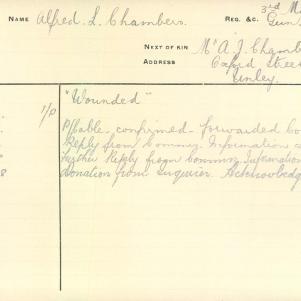 NAME Alfred L. Chambers. REG. &C. 3rd M
Gun
NEXT OF KIN Mr A. J. Chamb
ADDRESS Oxford Stree
Finley.
"Wounded"
1/p P/Cable. confirmed. forwarded Co
Reply from Commrs. Information
Further Reply from Commrs. Information
8 Donation from Inquirer. Acknowledg